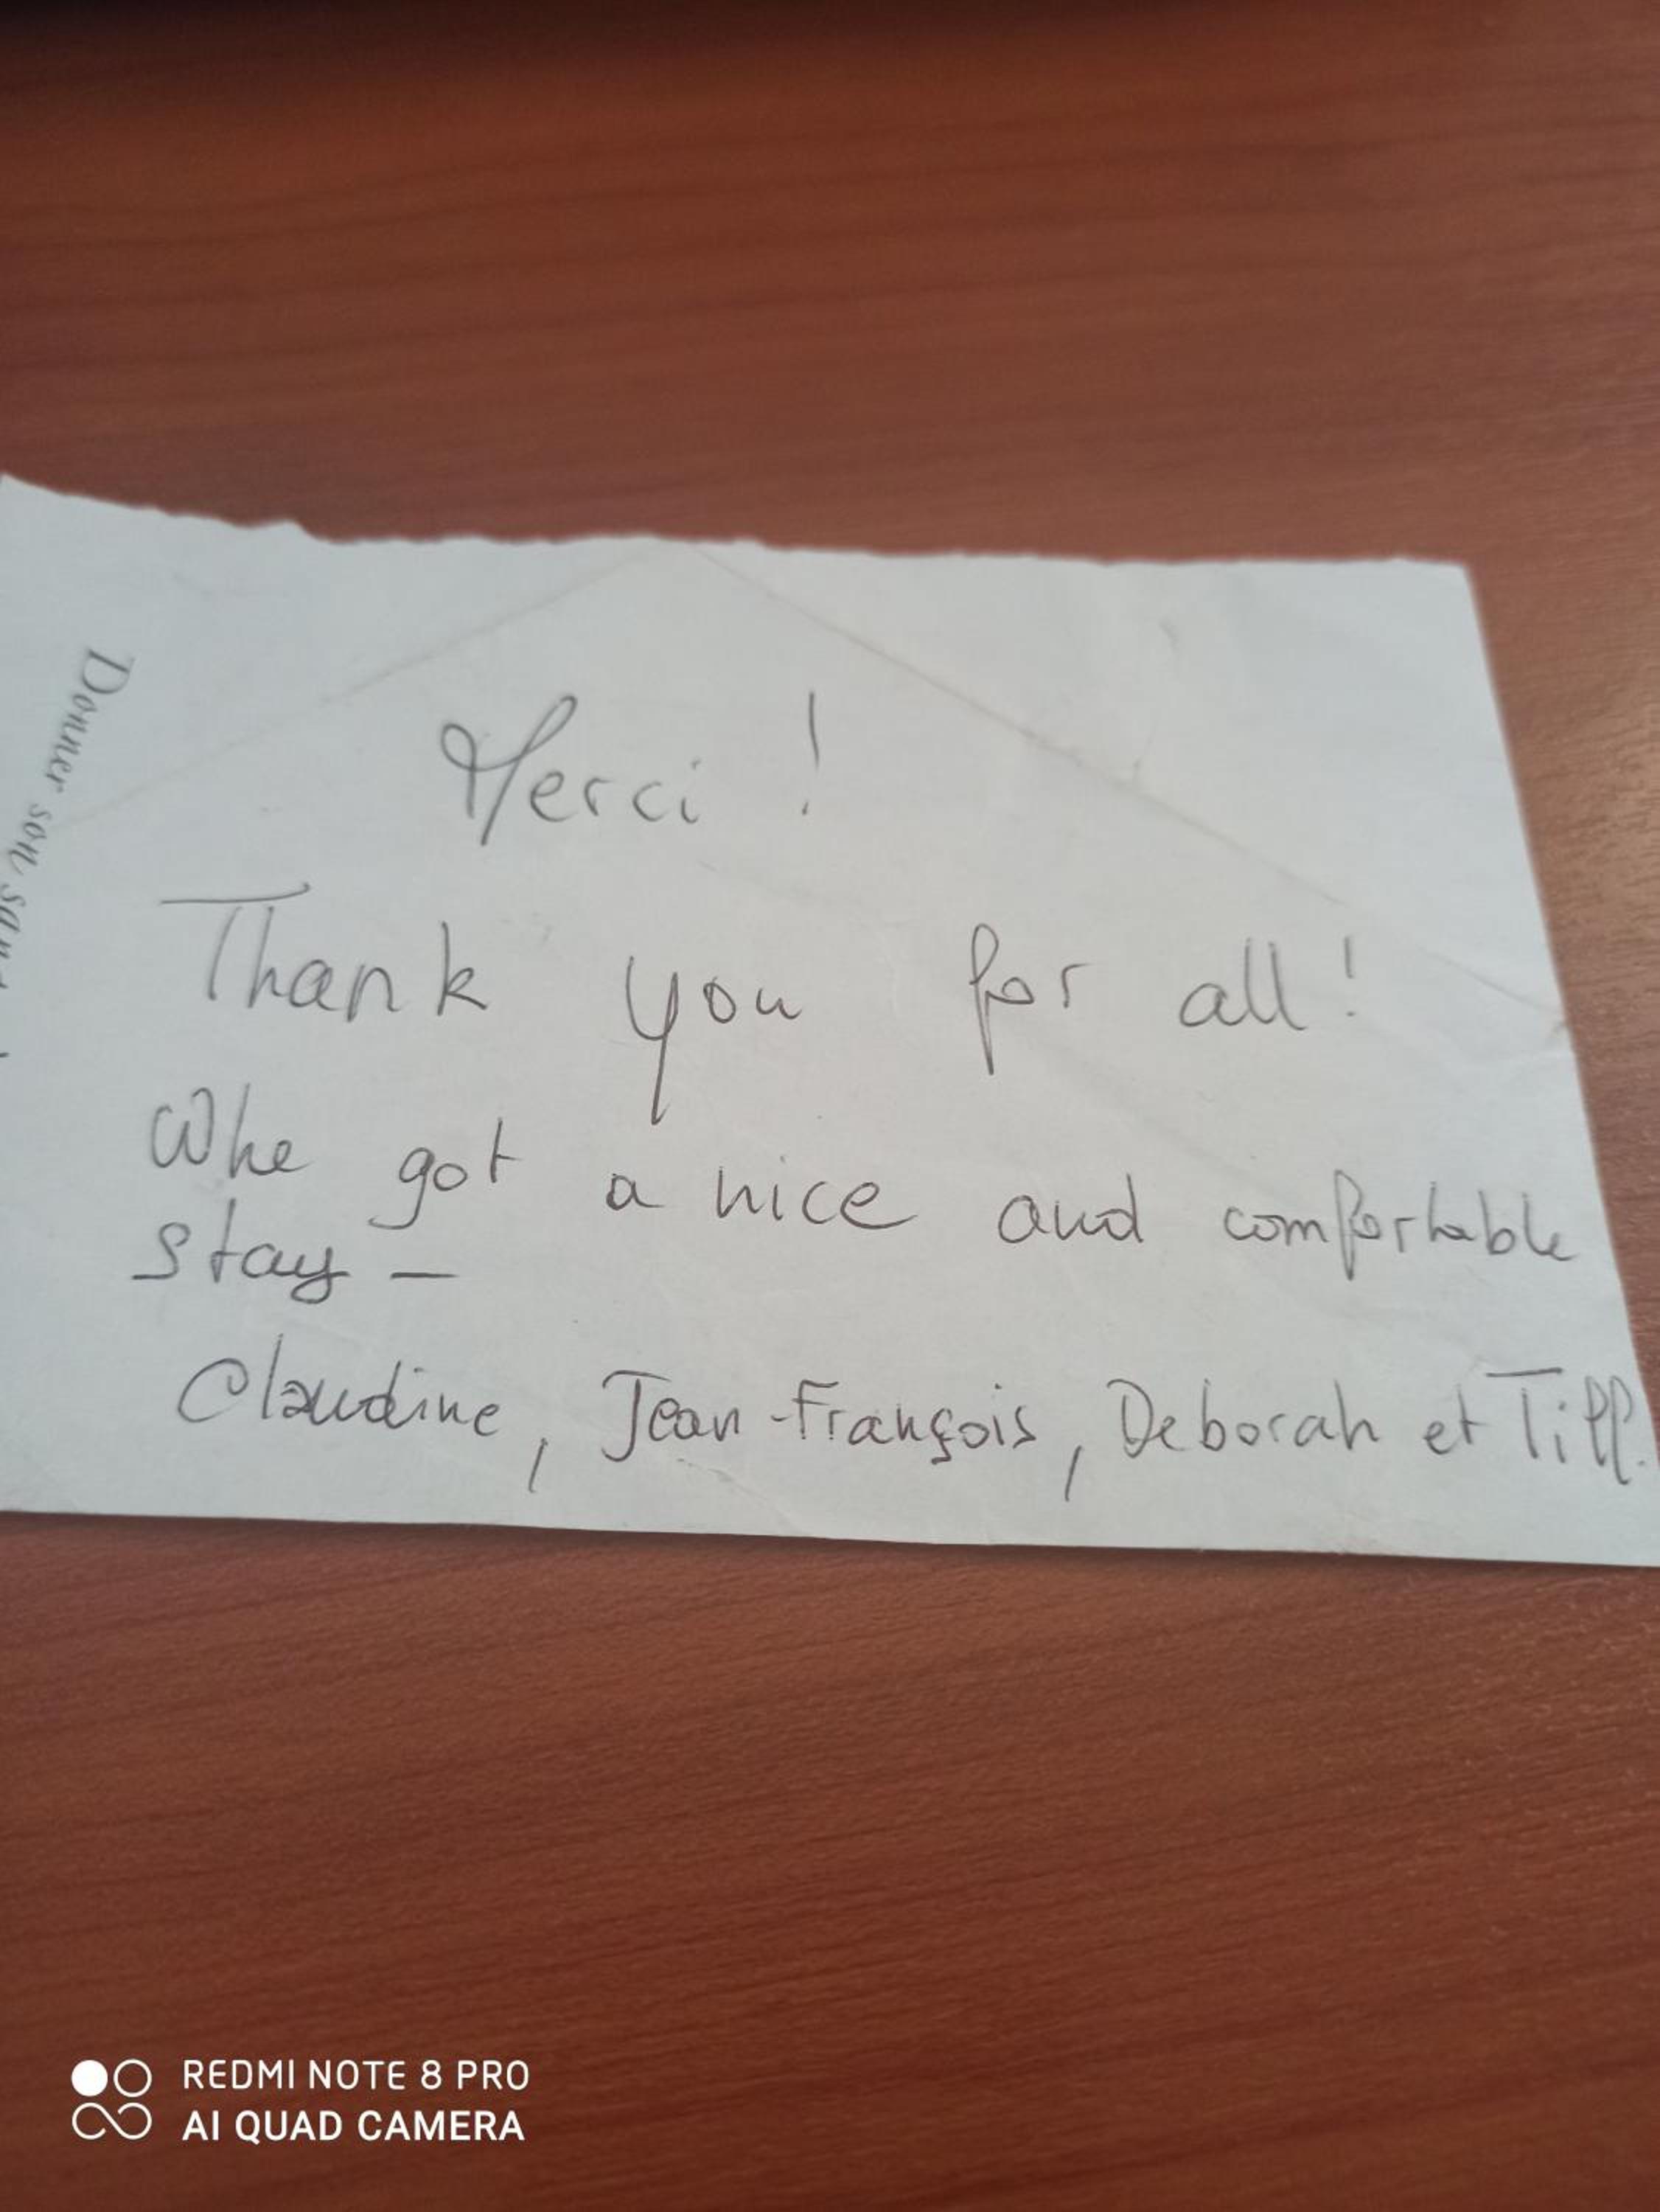 Merci !
Thank you for all!
Whe got a nice and comfortable
stay –
Claudine, Jean-François, Deborah et Tiff.
Donner son
REDMI NOTE 8 PRO
AI QUAD CAMERA